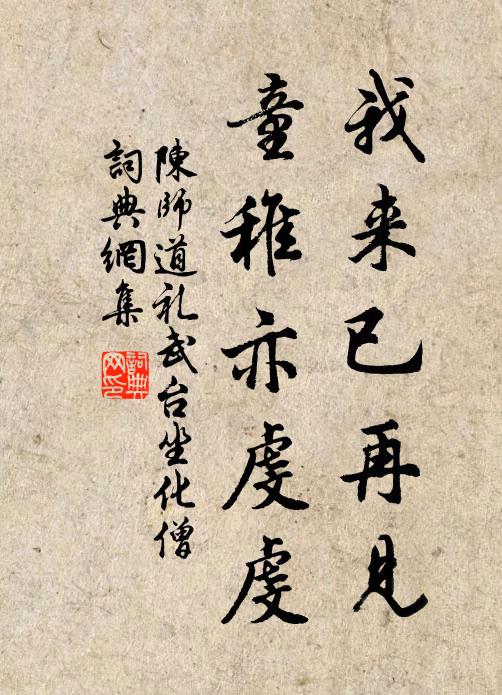 我来已再見
童稚亦虔虔
陳師道礼武台坐化僧
詞典網集
詞典网印